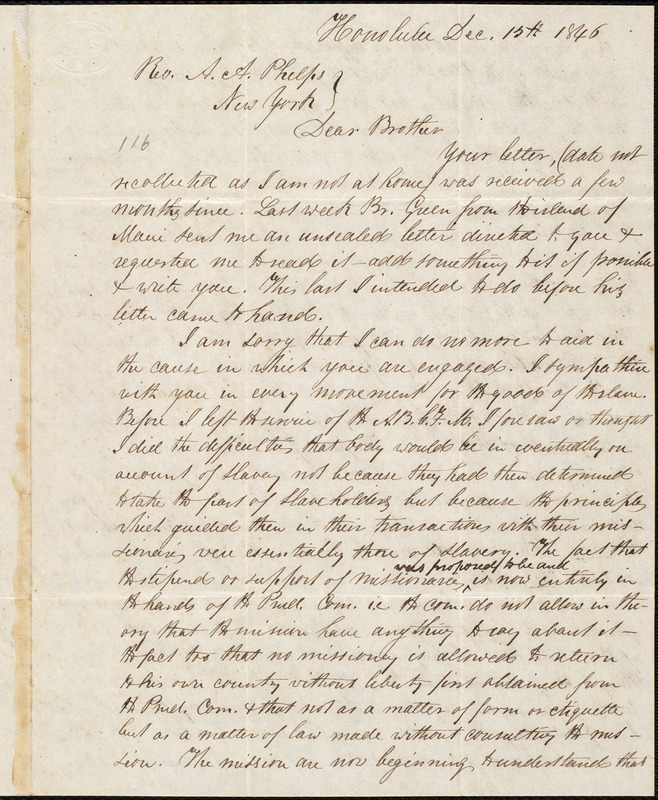 Honolulu Dec. 15th 1846
Rev. A. A. Phelps }
New York }
Dear Brother
116
Your letter, (date not
recollected as I am not at home) was received a few
months since. Last week Br. Green from the island of
Maui sent me an unsealed letter directed to you &
requested me to read it - add something to it if possible
& write you. This last I intended to do before his
letter came to hand.
I am sorry that I can do no more to aid in
the cause in which you are engaged. I sympathize
with you in every movement for the good of the slave.
Before I left the service of the A.B.C.F.M. I foresaw or thought
I did the difficulties that body would be in eventually on
account of slavery not because they had then determined
to take the part of slaveholders but because the principles
which guided them in their transactions with their mis-
sionaries were essentially those of slavery. The fact that
was proposed to be and
the stipend or support of missionaries, is now entirely in
the hands of the Prud. Com. i.e. the com. do not allow in the-
ory that the mission have anything to say about it -
the fact too that no missionary is allowed to return
to his own country without liberty first obtained from
the Prud. Com. & that not as a matter of form or etiquette
but as a matter of law made without consulting the mis-
sion. The mission are now beginning to understand that